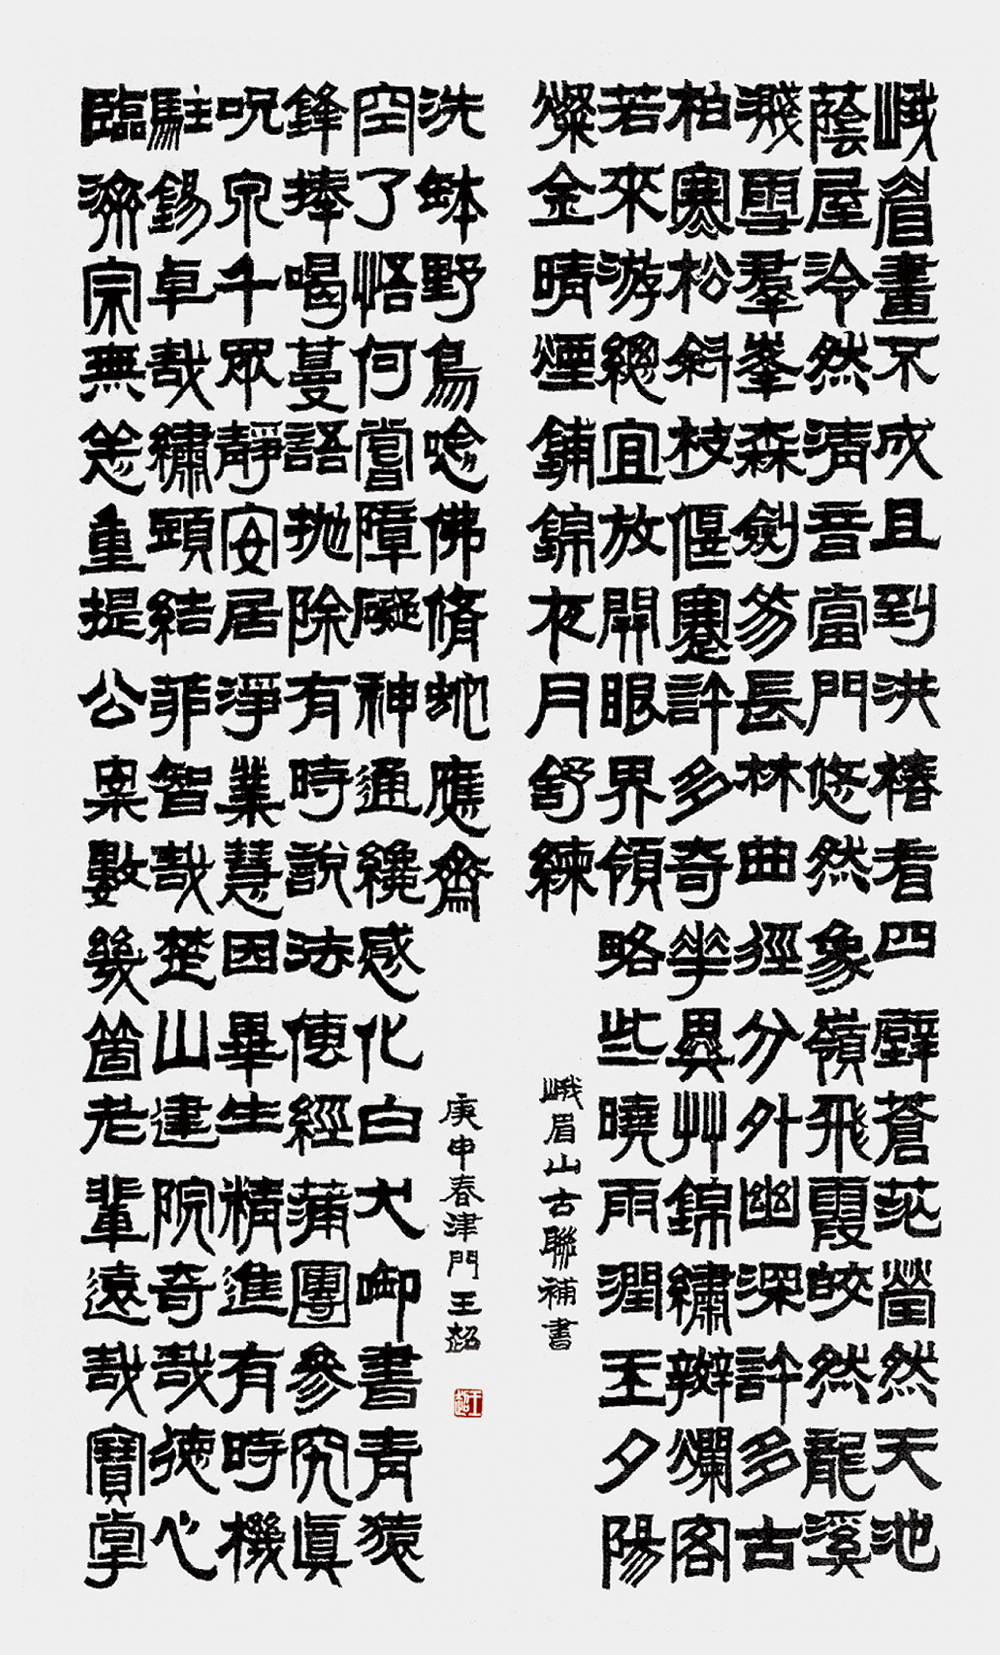 峨眉畫不成且到洪椿看四壁蒼茫瑩然天池
蔭屋泠然清音當門悠然象嶺飛霞皎然龍溪
濺雪羣峯森劍笏長林曲徑分外幽深許多古
柏寒松斜枝偃蹇許多奇華異艸錦繡辬爛客
若來游總宜放開眼界領略些曉雨潤玉夕陽
燦金晴煙鋪錦夜月舒練
峨眉山古聯補書
臨濟宗無恙重提公案數幾箇老輩遠哉寶掌
駐錫卓哉繡頭結菲智哉楚山建院奇哉德心
呪泉千眾靜安居淨業慧因畢生精進有時機
鋒捧喝蔓語拋除有時說法傳經蒲團參究真
空了悟何嘗障礙神通纔感化白犬啣書青猿
洗鉢野鳥唸佛脩虵應齋
庚申春津門王超
王超